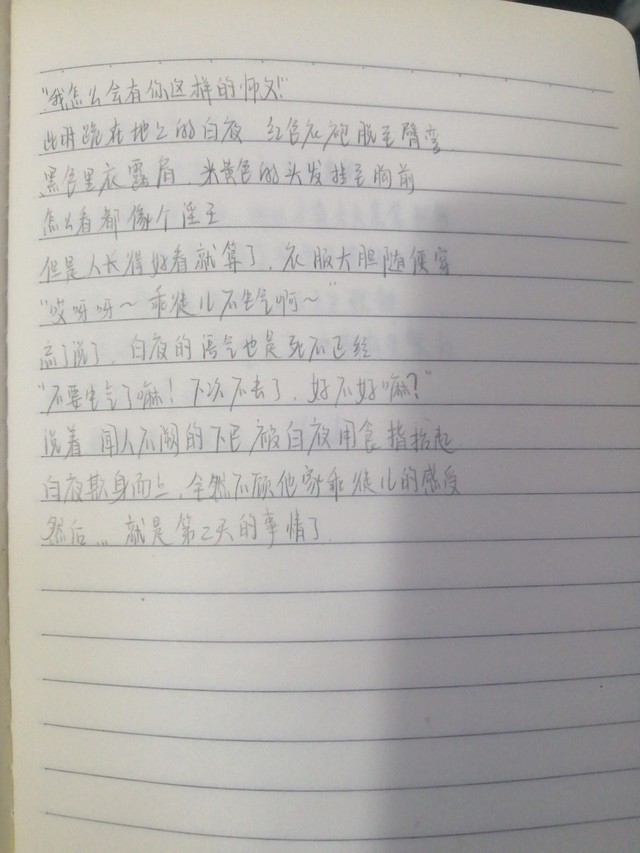 "我怎么会有你这样的师父!"
此时跪在地上的白夜 红色衣袍脱至臂弯
黑色里衣露肩，米黄色的头发挂至胸前
怎么看都像个淫王
但是人长得好看就算了，衣服大胆随便穿
"哎呀呀～乖徒儿不生气啊～"
完了完了，白夜的语气也是死不正经
"不要生气了嘛！下次不去了，好不好嘛？"
说着 闻人不溯的下巴被白夜用食指抬起
白夜欺身而上，全然不顾他家乖徒儿的感受
然后… 就是第二天的事情了.